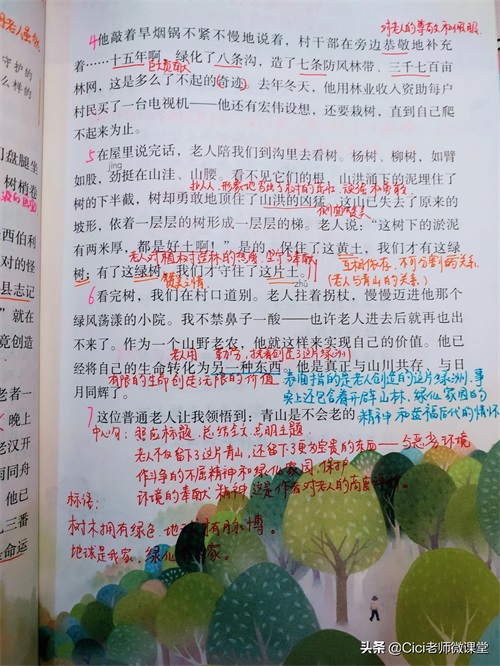 对老人的尊敬和佩服
4他敲着旱烟锅不紧不慢地说着，村干部在旁边恭敬地补充
着……十五年啊，绿化了八条沟，造了七条防风林带，三千七百亩
巨大贡献
林网，这是多么了不起的奇迹。去年冬天，他用林业收入资助每户
村民买了一台电视机——他还有宏伟设想，还要栽树，直到自己爬
不起来为止。
5在屋里说完话，老人陪我们到沟里去看树。杨树、柳树，如臂
jìng
如股，劲挺在山洼、山腰。看不见它们的根，山洪涌下的泥埋住了
树的下半截，树却勇敢地顶住了山洪的凶猛。这山已失去了原来的
坡形，依着一层层的树形成一层层的梯。老人说：“这树下的淤泥
有两米厚，都是好土啊！”是的，保住了这黄土，我们才有这绿
树；有了这绿树，我们才守住了这片土。
互相依存，不可分割的关系
(老人与青山的关系)
zhǔ
6看完树，我们在村口道别。老人拄着拐杖，慢慢迈进他那个
绿风荡漾的小院。我不禁鼻子一酸——也许老人进去后就再也出
不来了。作为一个山野老农，他就这样来实现自己的价值。他已
经将自己的生命转化为另一种东西。他是真正与山川共存、与日
有限的生命创造无限的价值
月同辉了。
7这位普通老人让我领悟到：青山是不会老的。
中心句：照应标题，总结全文，点明主题
老人不仅留下了这片青山，还留下了更为宝贵的东西——与恶劣环境
作斗争的不屈精神和绿化家园、保护
标语：
树木拥有绿色，地
守护的
么样的
盘腿坐
树梢卷
西伯利
对的怪
县志记
”在
竟创造
老者一
晚上
老汉开
同舟
他已
三番
命运
头条 @Cici老师微课堂